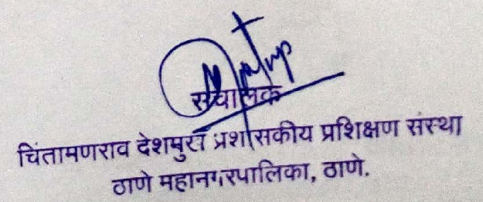 संचालक
चिंतामणराव देशमुख प्रशासकीय प्रशिक्षण संस्था
ठाणे महानगरपालिका, ठाणे.